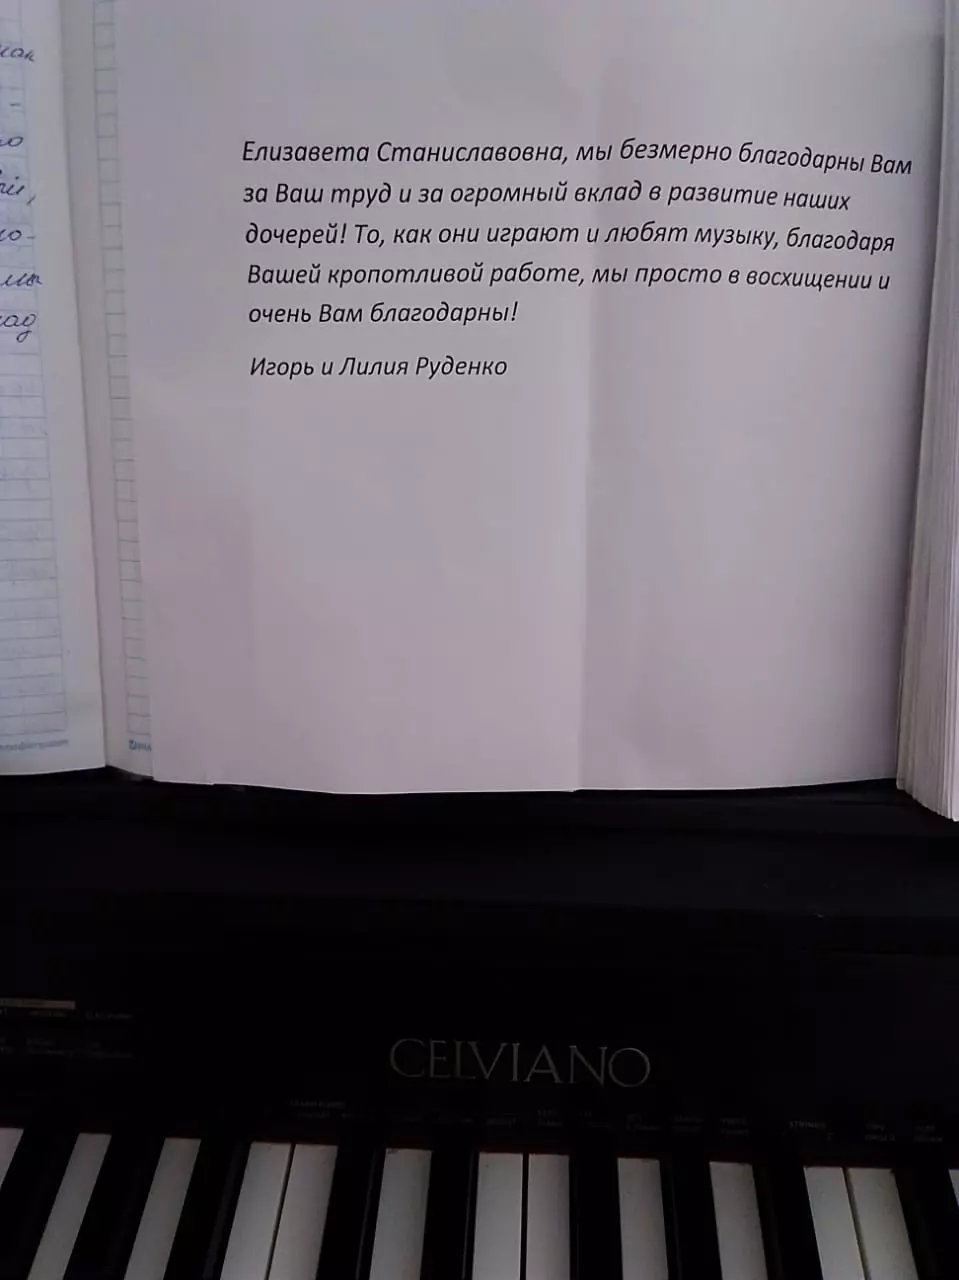 Елизавета Станиславовна, мы безмерно благодарны Вам
за Ваш труд и за огромный вклад в развитие наших
дочерей! То, как они играют и любят музыку, благодаря
Вашей кропотливой работе, мы просто в восхищении и
очень Вам благодарны!
Игорь и Лилия Руденко
CELVIANO